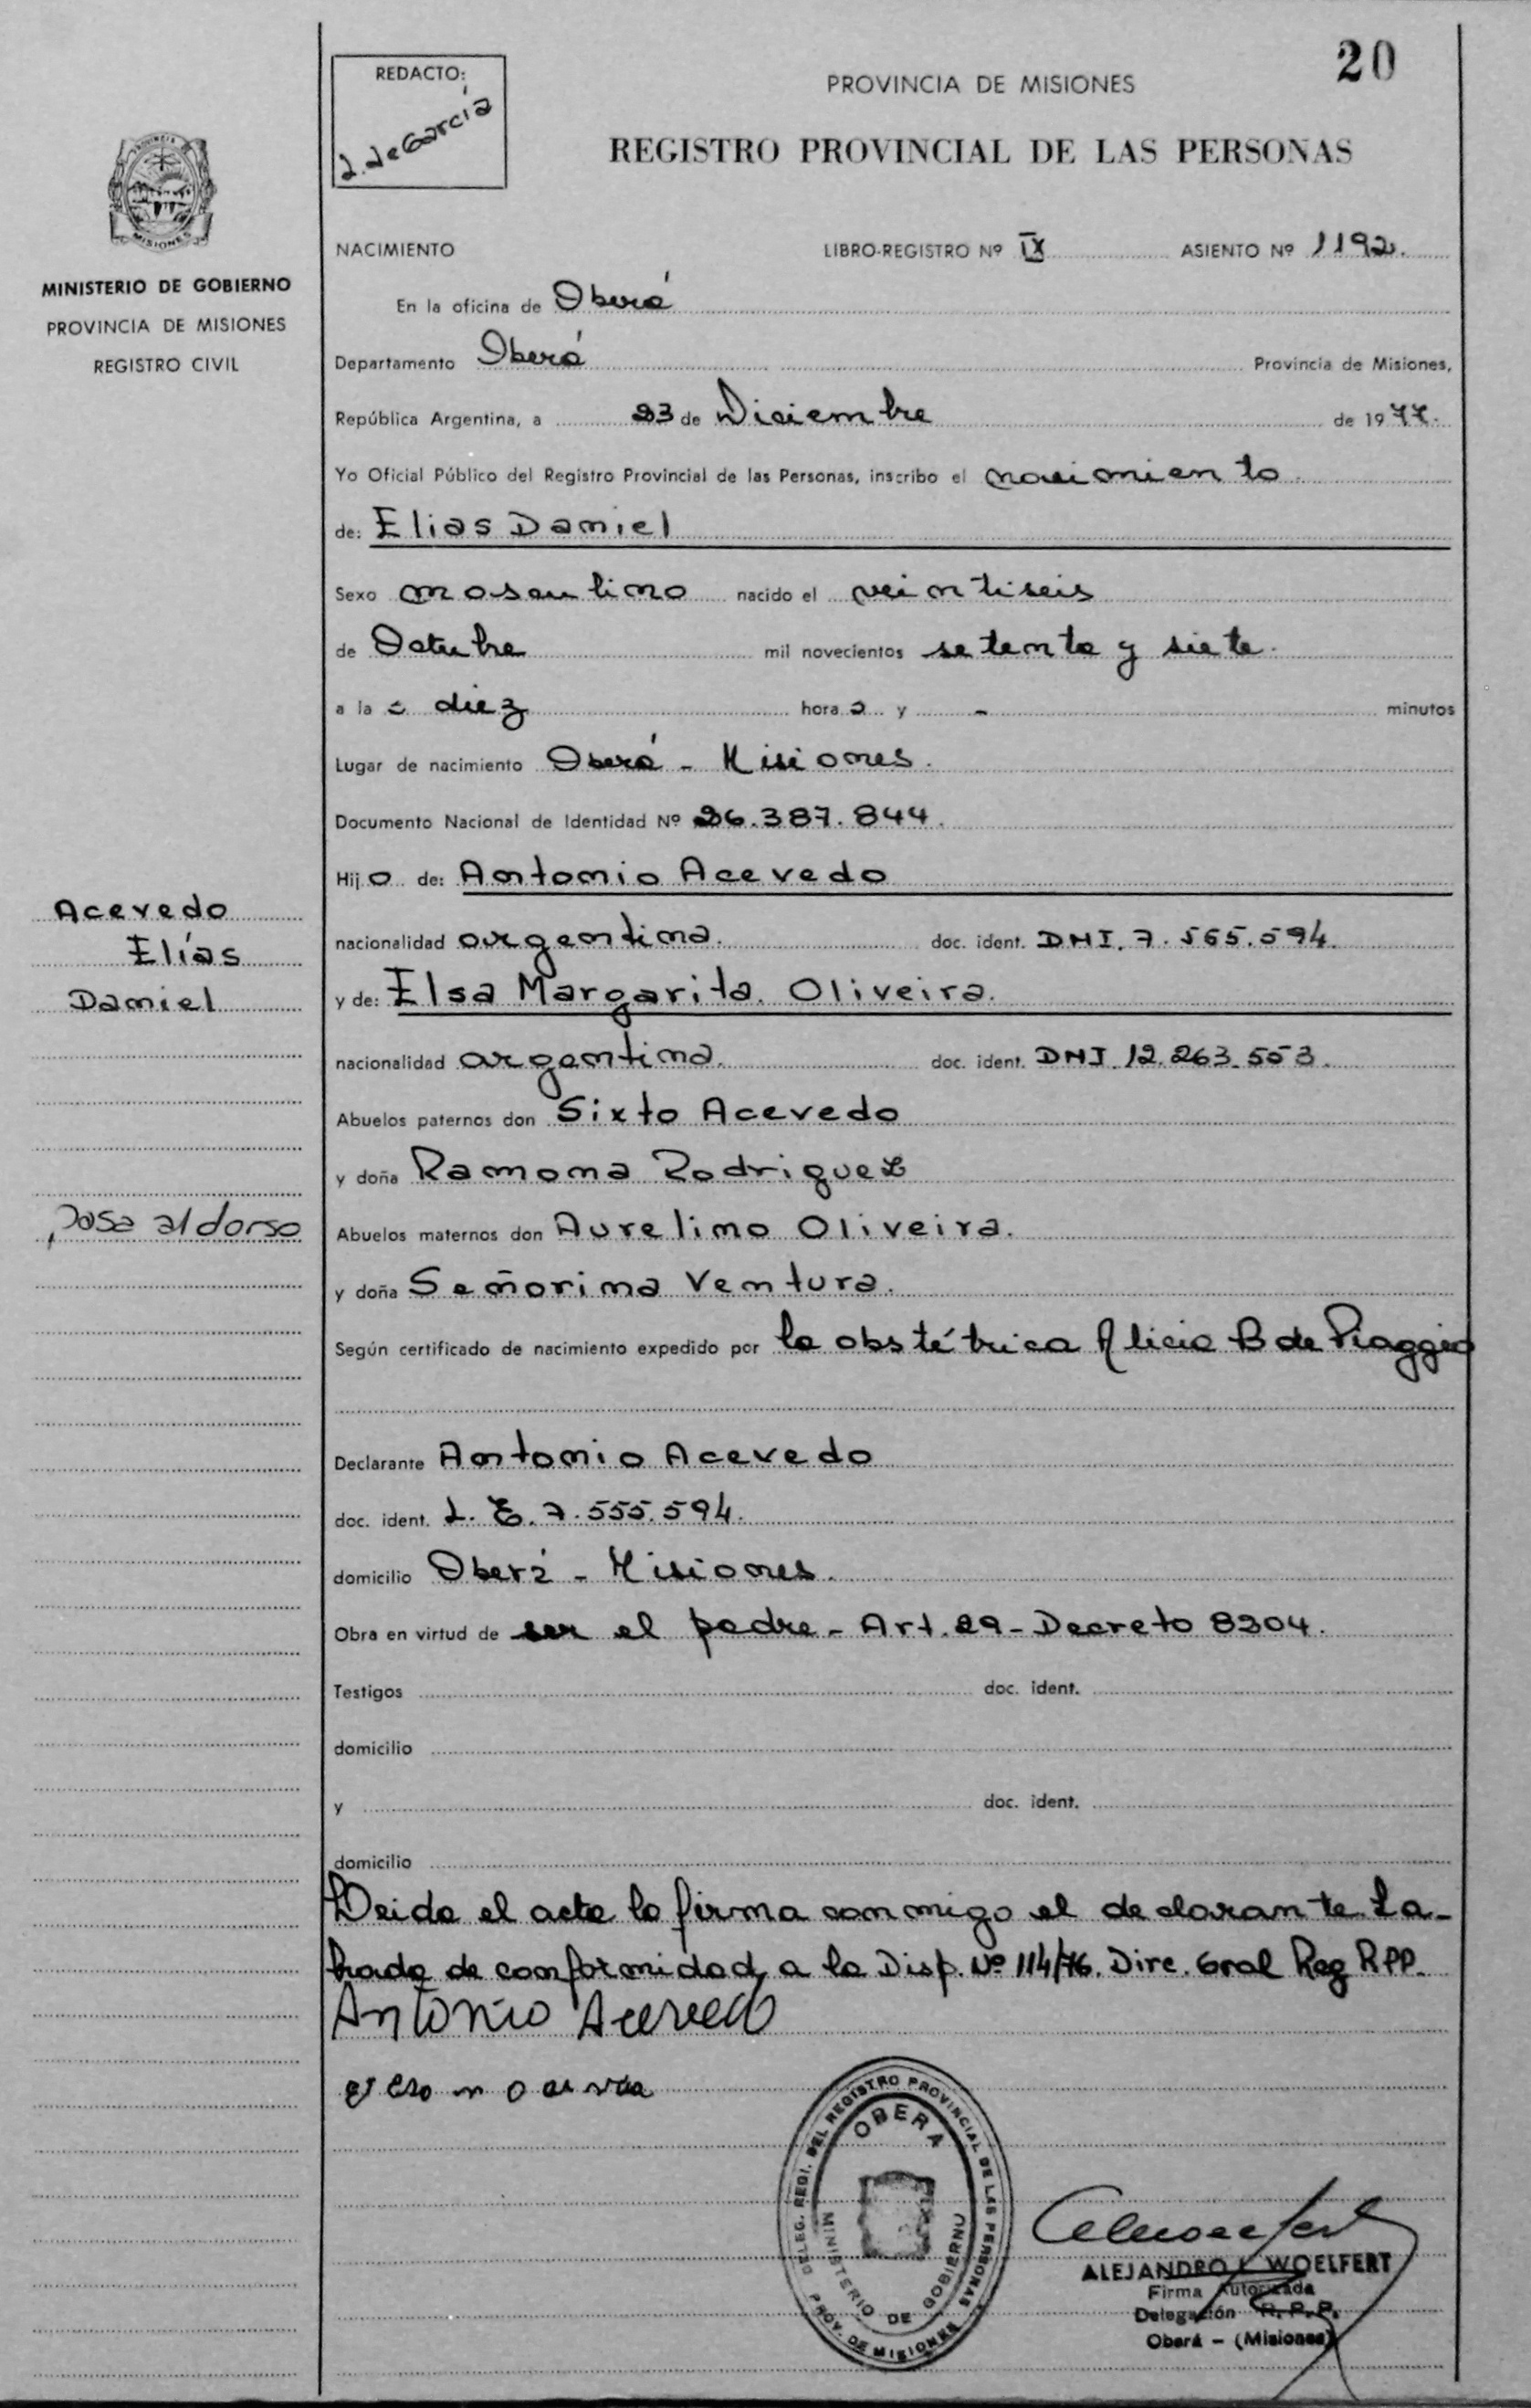 20
REDACTO:
L. de García
PROVINCIA DE MISIONES
REGISTRO PROVINCIAL DE LAS PERSONAS
MISIONES
MINISTERIO DE GOBIERNO
PROVINCIA DE MISIONES
REGISTRO CIVIL
NACIMIENTO LIBRO-REGISTRO Nº IX ASIENTO Nº 1192.
En la oficina de Oberá
Departamento Oberá Provincia de Misiones,
República Argentina, a 23 de Diciembre de 1977.
Yo Oficial Público del Registro Provincial de las Personas, inscribo el nacimiento
de: Elias Daniel
Sexo masculino nacido el veintiseis
de Octubre mil novecientos setenta y siete.
a la s diez hora s y - minutos
Lugar de nacimiento Oberá - Misiones.
Documento Nacional de Identidad Nº 26.387.844.
Hijo de: Antonio Acevedo
Acevedo
Elías
Daniel
nacionalidad argentina. doc. ident. DNI. 7.565.594.
y de: Elsa Margarita Oliveira.
nacionalidad argentina. doc. ident. DNI. 12.263.553.
Abuelos paternos don Sixto Acevedo
y doña Ramona Rodriguez
pasa al dorso
Abuelos maternos don Aurelino Oliveira.
y doña Señorina Ventura.
Según certificado de nacimiento expedido por la obstétrica Alicia B de Piaggio
Declarante Antonio Acevedo
doc. ident. L. E. 7.555.594.
domicilio Oberá - Misiones.
Obra en virtud de ser el padre - Art. 29 - Decreto 8204.
Testigos doc. ident.
domicilio
y doc. ident.
domicilio
Leida el acta la firma conmigo el declarante. La-
brada de conformidad a la Disp. Nº 114/76. Dirc. Gral Reg RPP.
Antonio Acevedo
DELEG. REGI. DEL REGISTRO PROVINCIAL DE LAS PERSONAS
OBERA
MINISTERIO DE GOBIERNO
PROV. DE MISIONES
ALEJANDRO L. WOELFERT
Firma Autorizada
Delegación R. P. P.
Oberá - (Misiones)